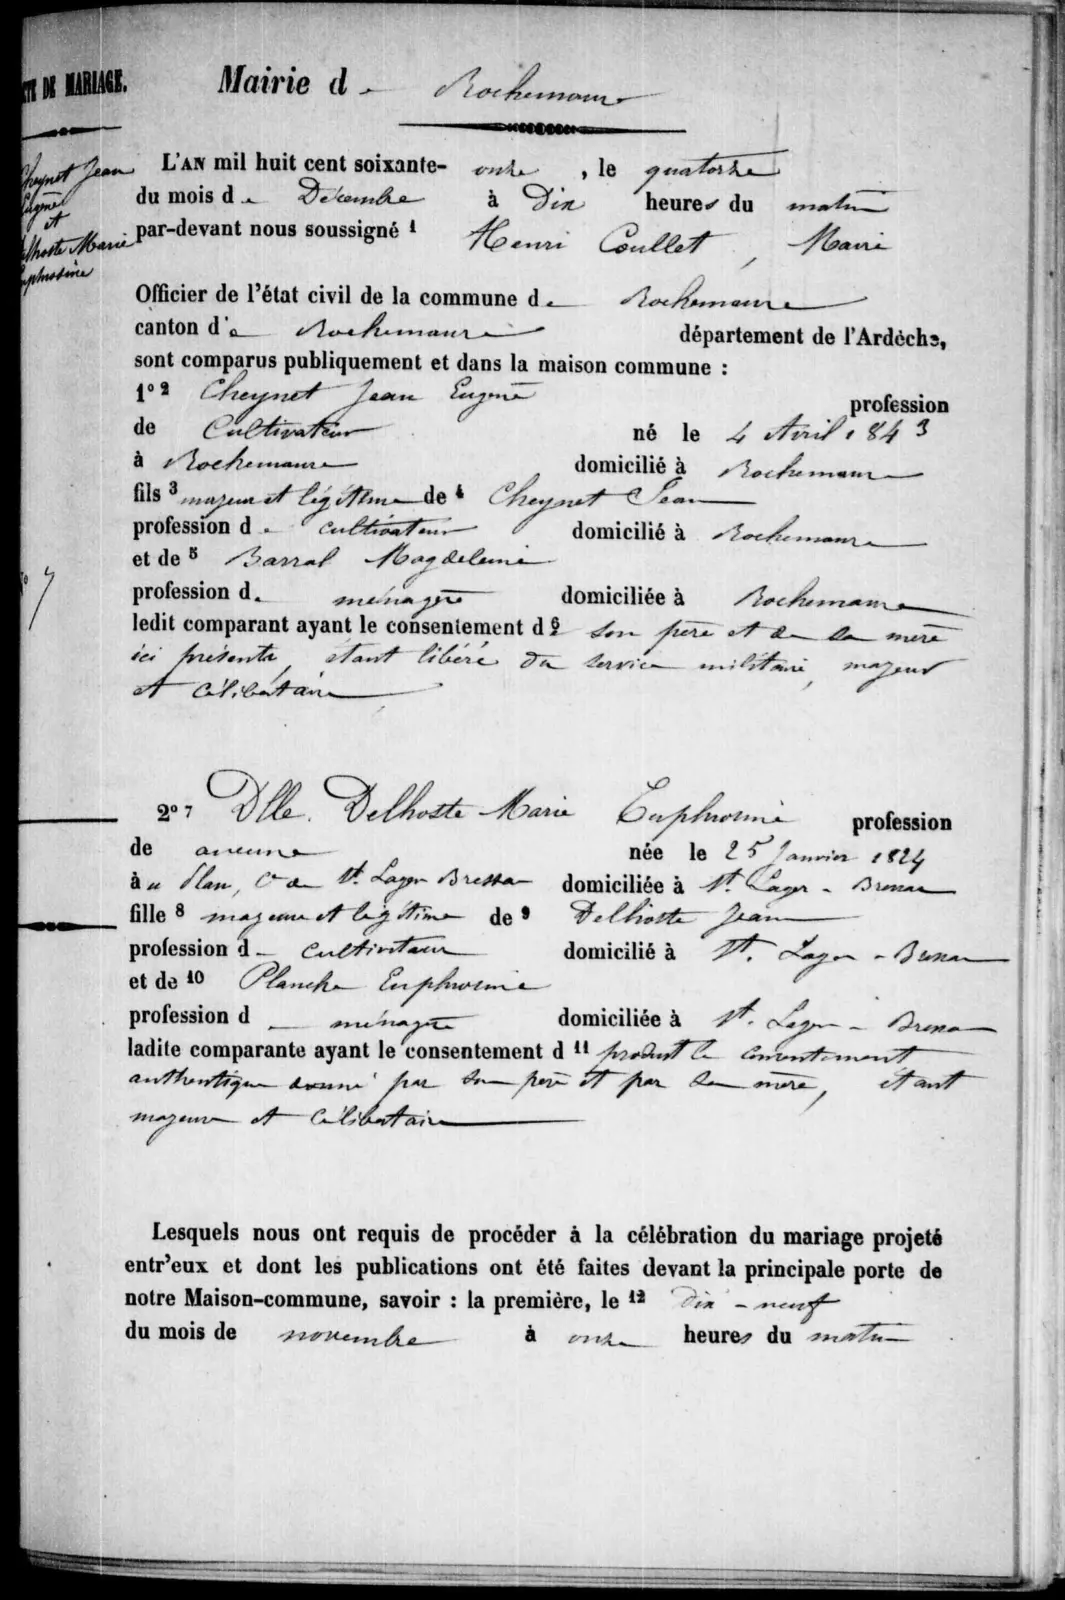 ACTE DE MARIAGE.
Mairie de Rochemaure
Cheynet Jean
Eugène
et
Delhoste Marie
Euphrosine
L'AN mil huit cent soixante- onze, le quatorze
du mois de Décembre à Dix heures du matin
par-devant nous soussigné 1 Henri Coullet, Maire
Officier de l'état civil de la commune de Rochemaure
canton de Rochemaure département de l'Ardèche,
sont comparus publiquement et dans la maison commune :
1º 2 Cheynet Jean Eugène profession
de Cultivateur né le 4 Avril 1843
à Rochemaure domicilié à Rochemaure
fils 3 majeur et légitime de 4 Cheynet Jean
profession de cultivateur domicilié à Rochemaure
et de 5 Barral Magdeleine
profession de ménagère domiciliée à Rochemaure
ledit comparant ayant le consentement de 6 son père et de sa mère
ici présents, étant libéré du service militaire, majeur
et célibataire
Nº 7
2º 7 Dlle. Delhoste Marie Euphrosine profession
de aucune née le 25 Janvier 1824
à Plan, Cne de St. Lager Bressac domiciliée à St. Lager-Bressac
fille 8 majeure et légitime de 9 Delhoste Jean
profession de cultivateur domicilié à St. Lager-Bressac
et de 10 Planche Euphrosine
profession d ménagère domiciliée à St. Lager-Bressac
ladite comparante ayant le consentement d 11 produit le consentement
authentique donné par son père et par sa mère, étant
majeure et célibataire
Lesquels nous ont requis de procéder à la célébration du mariage projeté
entr'eux et dont les publications ont été faites devant la principale porte de
notre Maison-commune, savoir : la première, le 12 dix-neuf
du mois de novembre à onze heures du matin